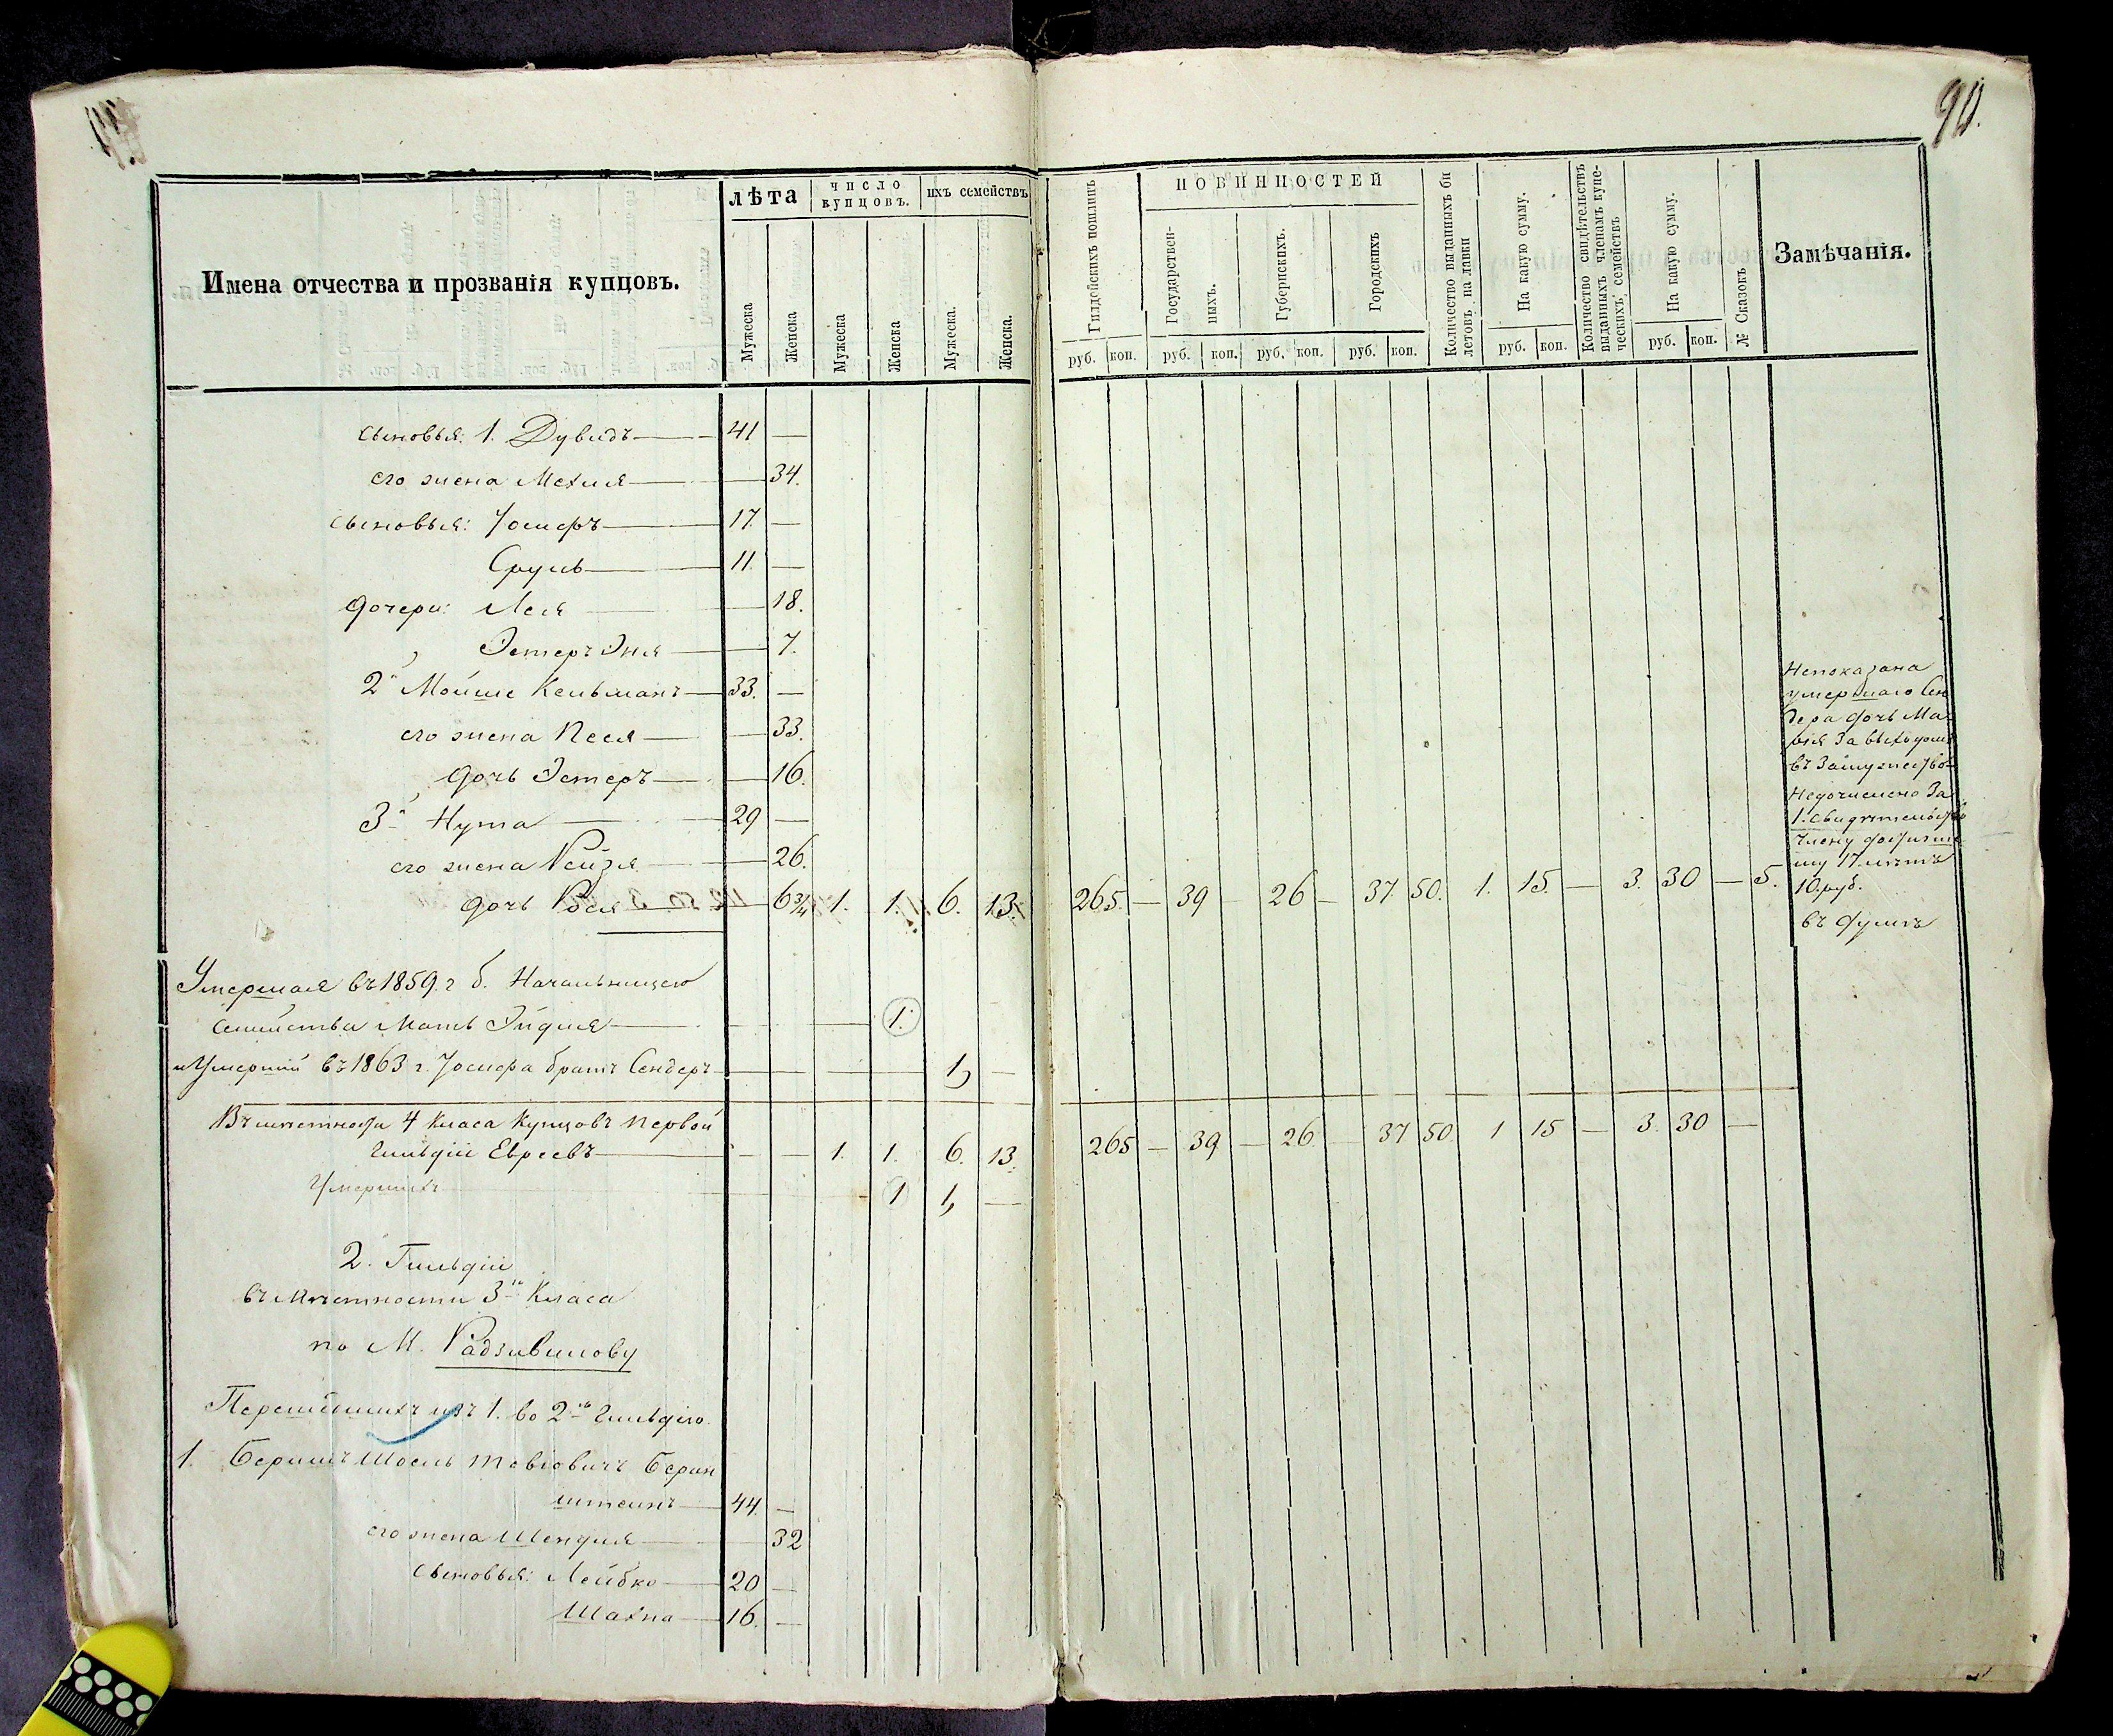 90.
Имена отчества и прозванія купцовъ.
лѣта
число купцовъ.
ихъ семействъ
Мужеска
Женска
Мужеска
Женска
Мужеска.
Женска.
Гильдейскихъ пошлинъ
ПОВИННОСТЕЙ
Государствен-
ныхъ.
Губернскихъ.
Городскихъ
Количество выданныхъ би
летовъ на лавки
На какую сумму.
Количество свидѣтельствъ
выданныхъ членамъ купе-
ческихъ семействъ
На какую сумму.
№ Сказокъ
Замѣчанія.
руб. коп. руб. коп. руб. коп. руб. коп. руб. коп. руб. коп.
сыновья: 1. Дувидъ 41 —
его жена Мехля — 34.
сыновья: Іосифъ 17. —
Сруль 11. —
дочери: Лея — 18.
Эстеръ Эня — 7.
2й Мойше Кельманъ 33. —
его жена Песя — 33.
дочь Эстеръ — 16.
3й Нута 29 —
его жена Рейзя — 26.
дочь Рося — 6 3/4 1. 1. 6. 13. 265. — 39 — 26 — 37 50. 1. 15. — 3. 30 — 5.
Непоказана
умершаго Сен
дера дочь Ма
за выходомъ
въ замужество
Недочислено за
1. свидѣтельство
члену
17. лѣтъ
10. руб.
Умершая въ 1859. г б. Начальницею
семейства Мать Эйдля 1.
и Умершій въ 1863 г. Іосифа братъ Сендеръ 1, —
Въ мѣстности 4 класа Купцовъ первой
Гильдіи Евреевъ — — 1. 1. 6. 13. 265 — 39 — 26. — 37 50 1 15 — 3. 30 —
Умершихъ 1 1, —
2. Гильдіи
въ мѣстности 3го Класа
по М. Радзивилову
Перешедшихъ изъ 1. во 2ю Гильдію.
1. Беришъ Шоель Тевіовичъ Берин
штеинъ 44. —
его жена Шендля 32
сыновья: Лейбко 20 —
Шахна 16. —